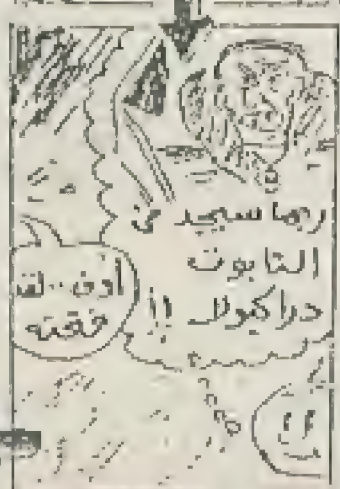 ربما سيجد في
التابوت
دراكيولا !!
أوف .. لقد
فتحته
!!